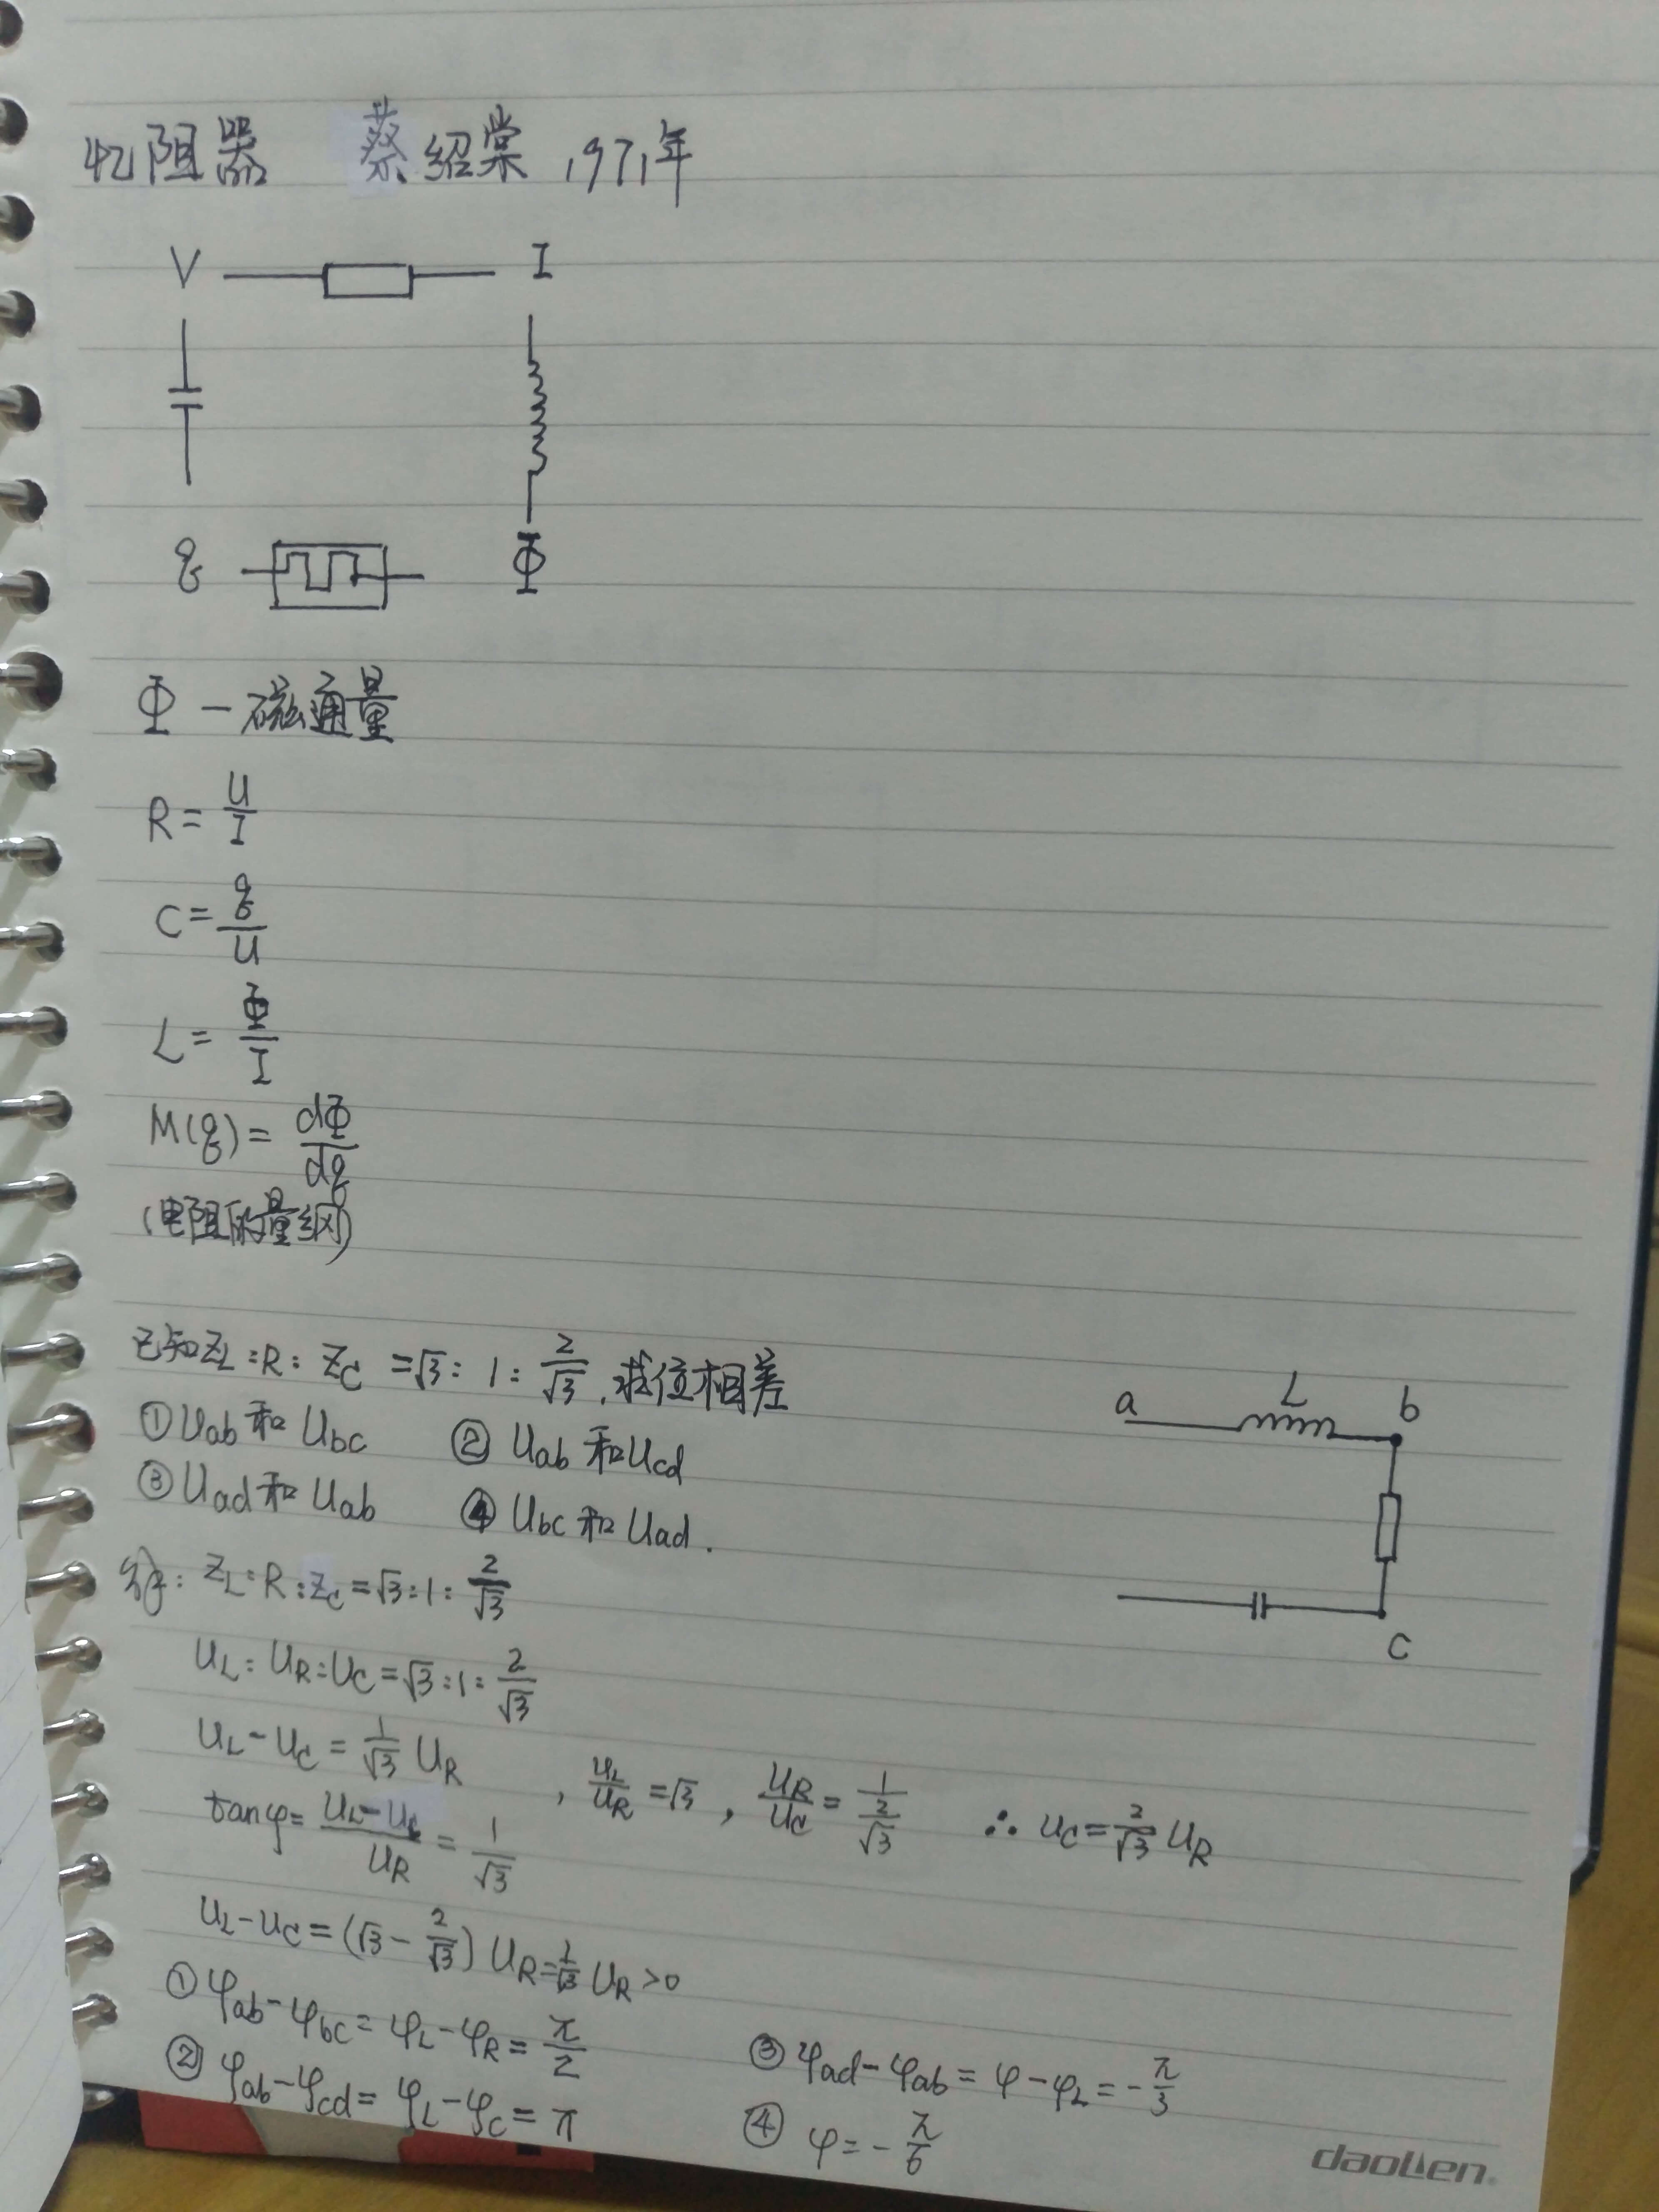 忆阻器 蔡绍棠 1971年
V I
q Φ
Φ — 磁通量
R = U/I
C = q/U
L = Φ/I
M(q) = dΦ/dq
(电阻的量纲)
已知 Z_L : R : Z_C = √3 : 1 : 2/√3 . 求位相差
① U_ab 和 U_bc ② U_ab 和 U_cd
③ U_ad 和 U_ab ④ U_bc 和 U_ad .
a L b
c
解: Z_L : R : Z_C = √3 : 1 : 2/√3
U_L : U_R : U_C = √3 : 1 : 2/√3
U_L - U_C = 1/√3 U_R , U_L/U_R = √3 , U_R/U_C = 1/(2/√3) ∴ U_C = 2/√3 U_R
tanφ = (U_L - U_C)/U_R = 1/√3
U_L - U_C = (√3 - 2/√3) U_R = 1/√3 U_R > 0
① φ_ab - φ_bc = φ_L - φ_R = π/2
② φ_ab - φ_cd = φ_L - φ_C = π
③ φ_ad - φ_ab = φ - φ_L = - π/3
④ φ = - π/6
daolien